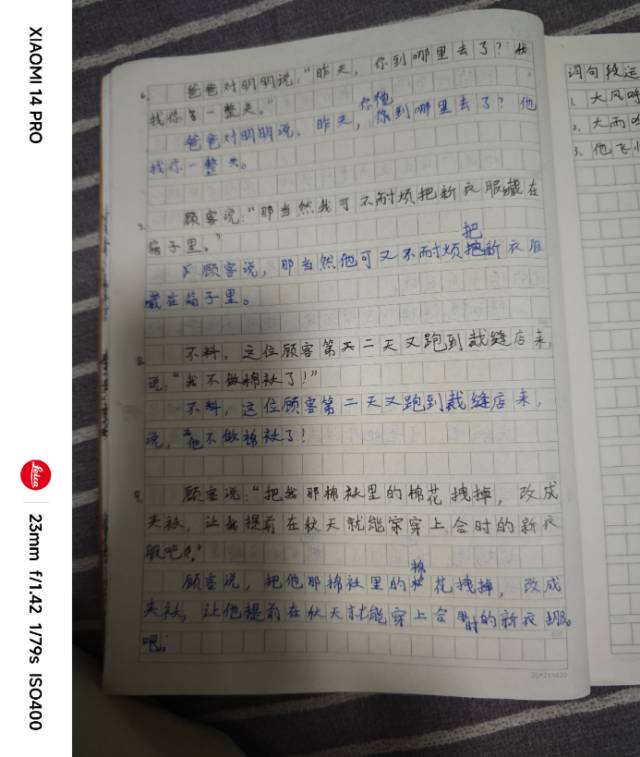 XIAOMI 14 PRO
Leica
23mm f/1.42 1/79s ISO400
6. 爸爸对明明说，“昨天，你到哪里去了？
找你 一整天。”
爸爸对明明说，昨天，他到哪里去了？他
找你一整天。
7. 顾客说“那当然我可不耐烦把新衣服藏在
箱子里。”
顾客说，那当然他可又不耐烦把新衣服
藏在箱子里。
8. 不料，这位顾客第 二天又跑到裁缝店来
说，“我不做棉袄了！”
不料，这位顾客第二天又跑到裁缝店来，
说，他不做棉袄了！
9. 顾客说“把我那棉袄里的棉花拽掉，改成
夹袄，让我提前在秋天就能 穿上合时的新衣
服吧。”
顾客说，把他那棉袄里的棉花拽掉，改成
夹袄，让他提前在秋天就能穿上合时的新衣服。
吧。
词句段运
1. 大风呼
2. 大雨
3. 他飞